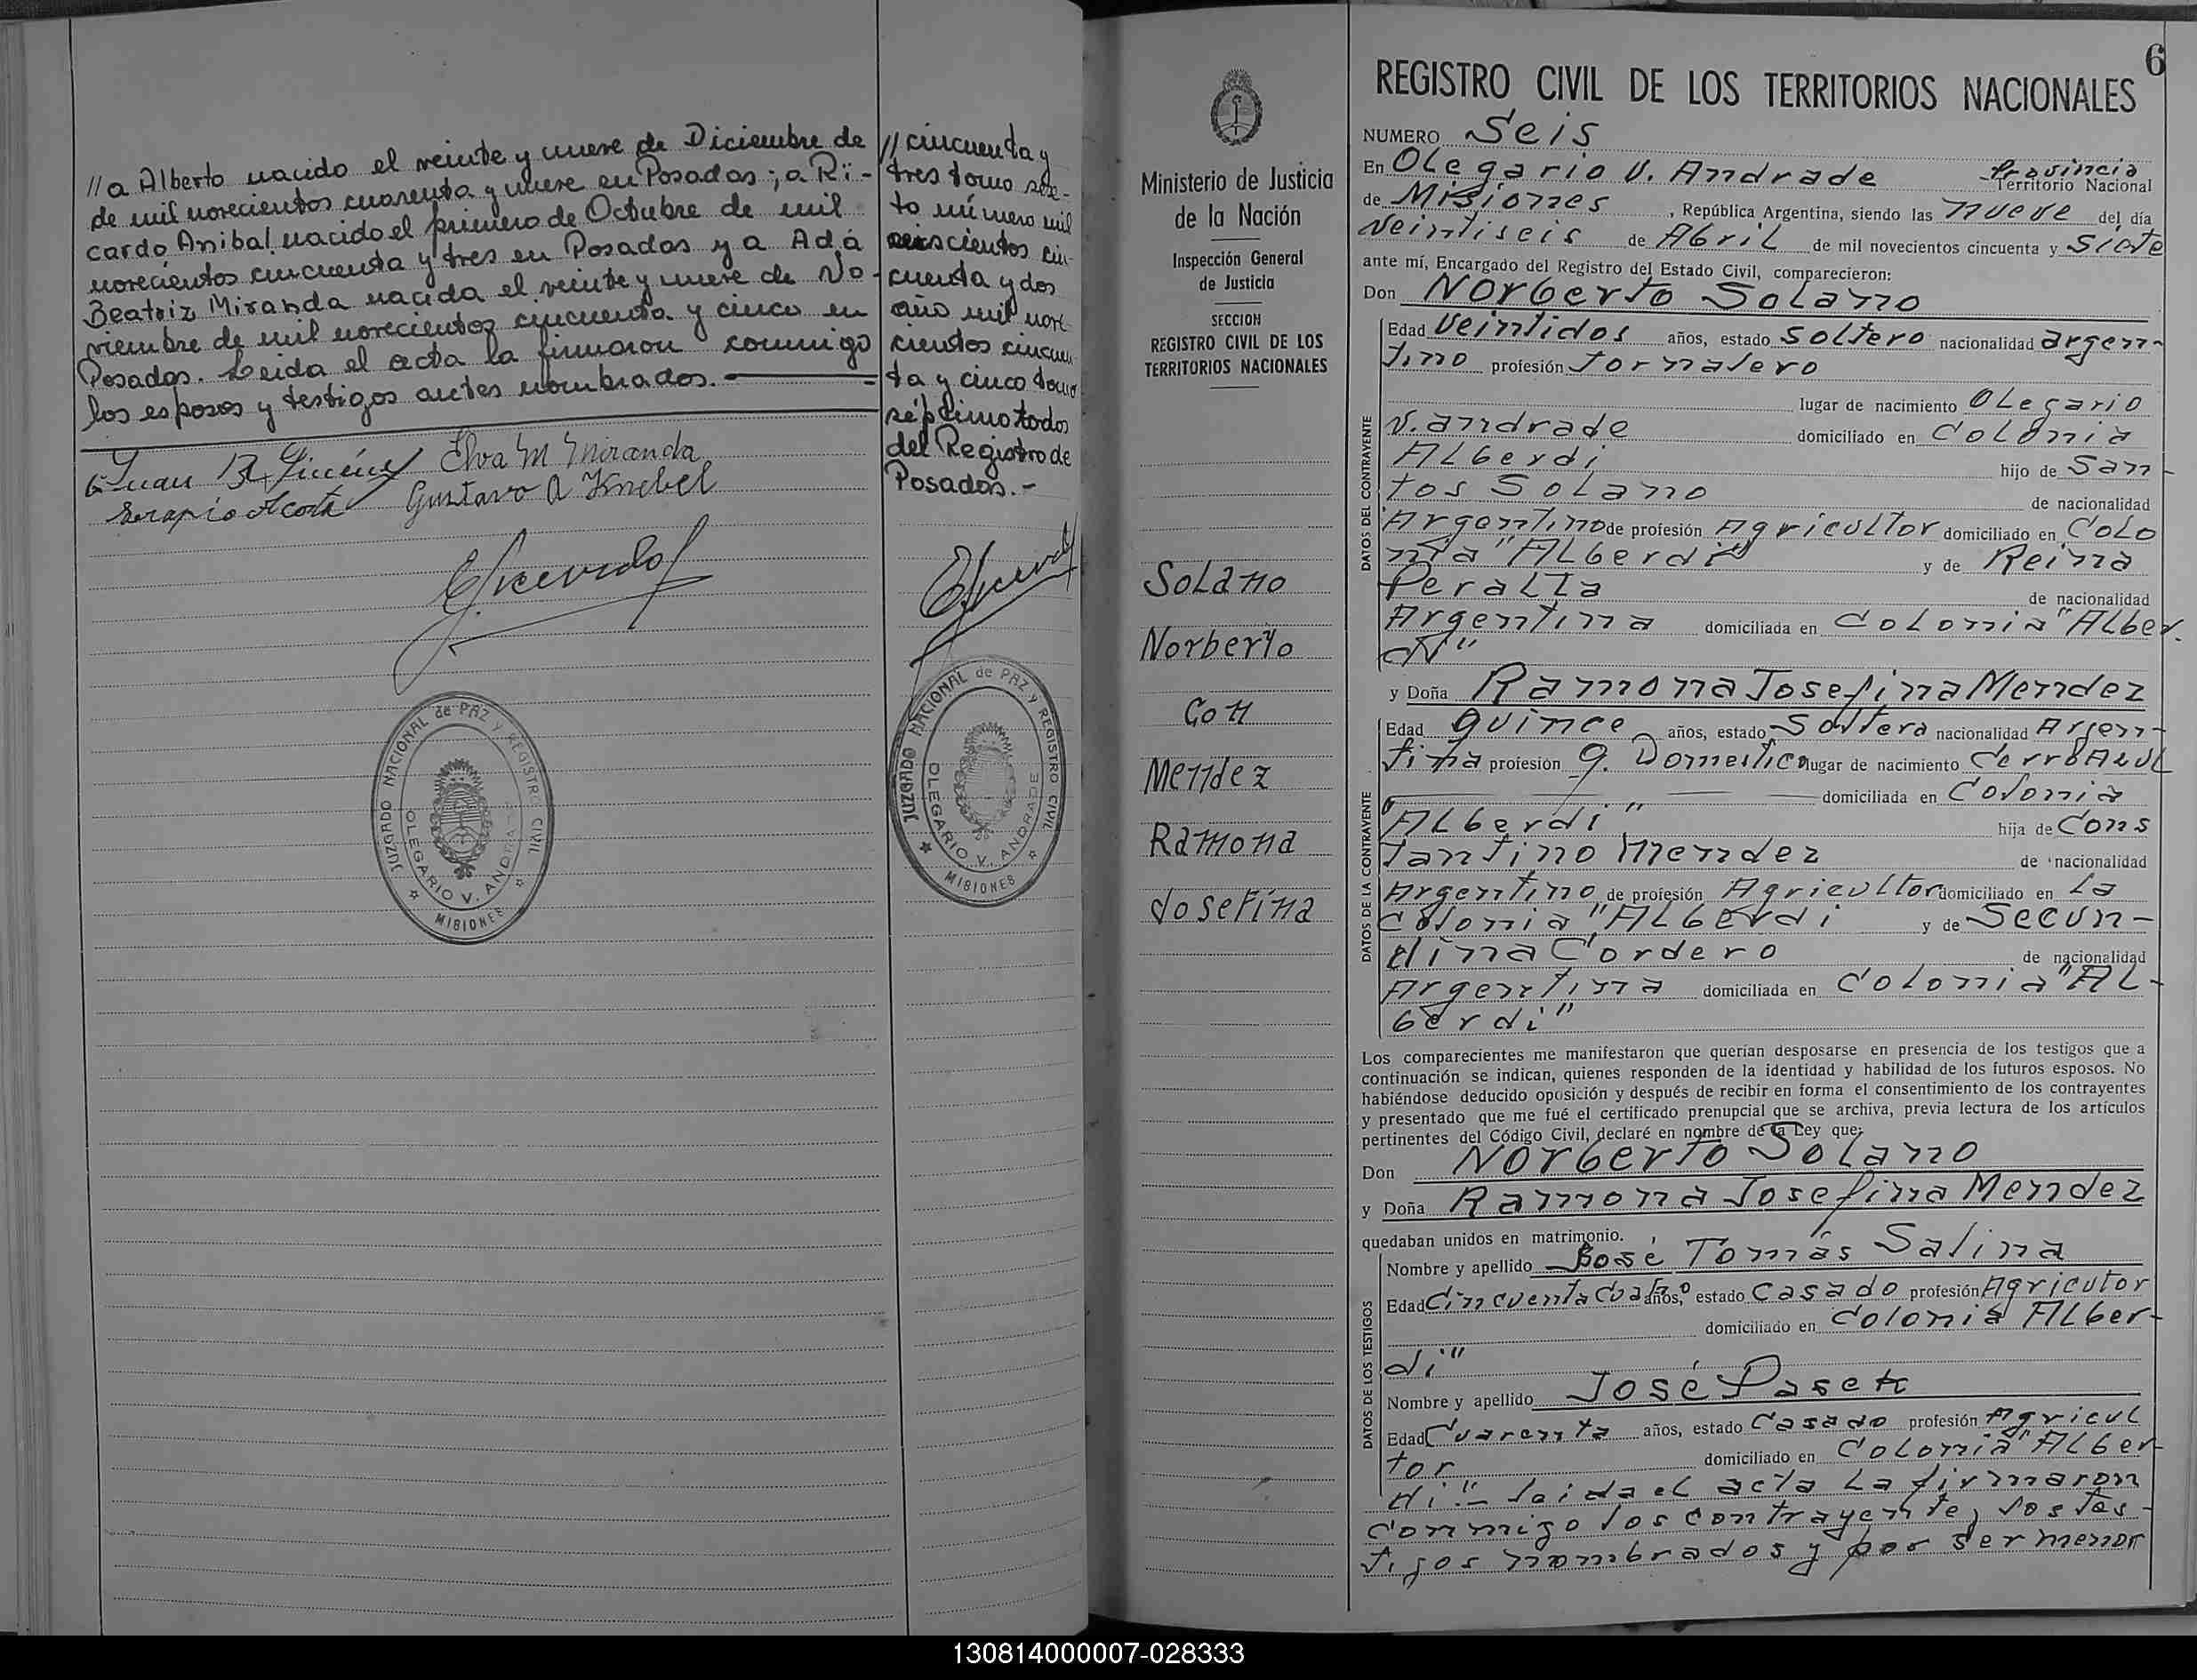 //a Alberto nacido el veinte y nueve de Diciembre de
de mil novecientos cuarenta y nueve en Posadas; a Ri-
cardo Anibal nacido el primero de Octubre de mil
novecientos cincuenta y tres en Posadas y a Ada
Beatriz Miranda nacida el veinte y nueve de No-
viembre de mil novecientos cincuenta y cinco en
Posadas. Leida el acta la firmaron conmigo
los esposos y testigos antes nombrados.
Juan B. Giménez Elva M Miranda
Serapio Acosta Gustavo A Knebel
JUZGADO NACIONAL de PAZ Y REGISTRO CIVIL
OLEGARIO V. ANDRADE
MISIONES
//cincuenta y
tres tomo sex-
to número mil
seiscientos cin-
cuenta y dos
año mil nove-
cientos cincuen
ta y cinco tomo
séptimo todos
del Registro de
Posadas.-
JUZGADO NACIONAL de PAZ y REGISTRO CIVIL
OLEGARIO V. ANDRADE
MISIONES
Ministerio de Justicia
de la Nación
Inspección General
de Justicia
SECCION
REGISTRO CIVIL DE LOS
TERRITORIOS NACIONALES
Solano
Norberto
Con
Mendez
Ramona
Josefina
6
REGISTRO CIVIL DE LOS TERRITORIOS NACIONALES
NUMERO Seis
En Olegario V. Andrade Provincia Territorio Nacional
de Misiones, República Argentina, siendo las nueve del día
Veintiseis de Abril de mil novecientos cincuenta y Siete
ante mí, Encargado del Registro del Estado Civil, comparecieron:
Don Norberto Solano
DATOS DEL CONTRAYENTE
Edad Veintidos años, estado Soltero nacionalidad argen-
tino profesión Jornalero
lugar de nacimiento Olegario
V. andrade domiciliado en Colonia
Alberdi hijo de San-
tos Solano de nacionalidad
Argentino de profesión Agricultor domiciliado en Colo
nia "Alberdi" y de Reina
Peralta de nacionalidad
Argentina domiciliada en Colonia "Alber-
di"
y Doña Ramona Josefina Mendez
DATOS DE LA CONTRAYENTE
Edad quince años, estado Soltera nacionalidad Argen-
tina profesión q. Domestico lugar de nacimiento Cerro Azul
domiciliada en Colonia
"Alberdi" hija de Cons
tantino Mendez de nacionalidad
Argentino de profesión Agricultor domiciliado en La
Colonia "Alberdi y de Secun-
dina Cordero de nacionalidad
Argentina domiciliada en Colonia "Al-
berdi"
Los comparecientes me manifestaron que querían desposarse en presencia de los testigos que a
continuación se indican, quienes responden de la identidad y habilidad de los futuros esposos. No
habiéndose deducido oposición y después de recibir en forma el consentimiento de los contrayentes
y presentado que me fué el certificado prenupcial que se archiva, previa lectura de los artículos
pertinentes del Código Civil, declaré en nombre de la Ley que:
Don Norberto Solano
y Doña Ramona Josefina Mendez
quedaban unidos en matrimonio.
DATOS DE LOS TESTIGOS
Nombre y apellido José Tomás Salina
Edad Cincuenta Cuatro años, estado Casado profesión Agricutor
domiciliado en Colonia Alber-
di"
Nombre y apellido José Pasek
Edad Cuarenta años, estado Casado profesión Agricul
tor domiciliado en Colonia "Alber-
di".- Leida el acta La firmaron
conmigo los contrayente, los tes-
tigos nombrados y por ser menor
130814000007-028333